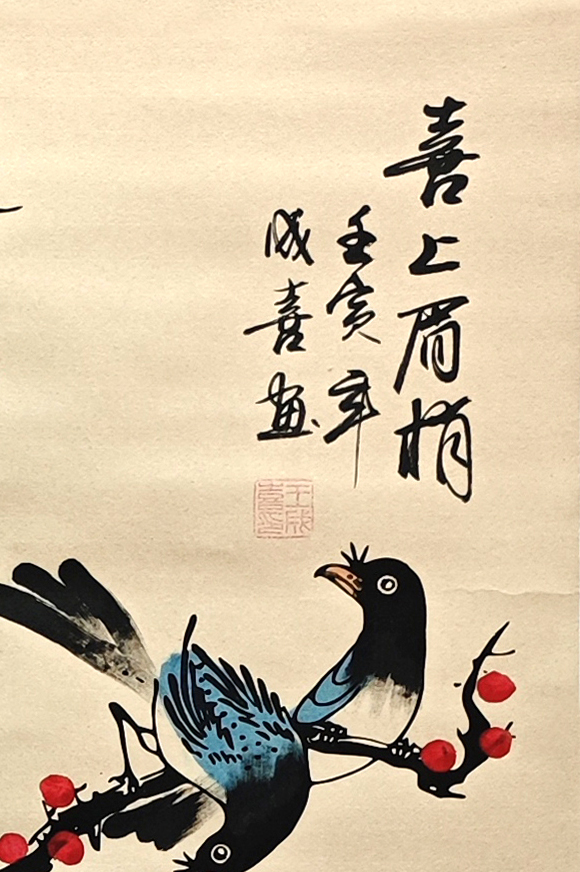 喜上眉梢
壬寅年
成喜画
王成喜印